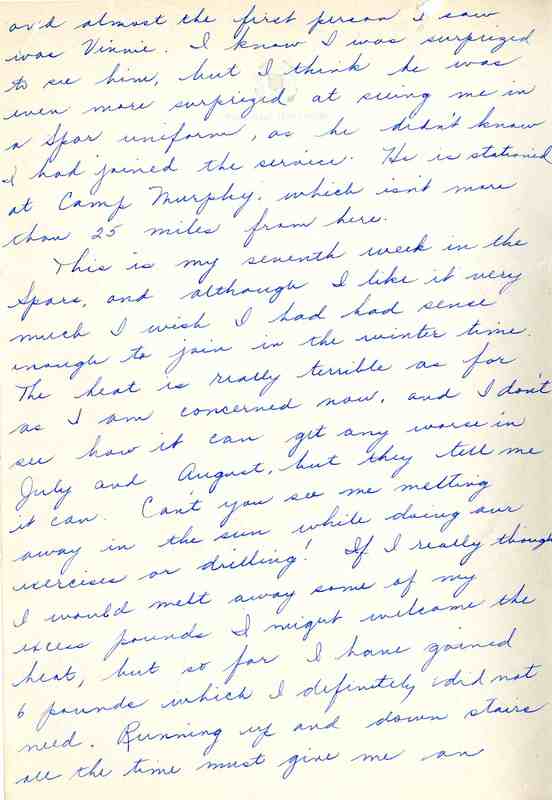 and almost the first person I saw
was Vinnie. I know I was surprized
to see him, but I think he was
even more surprized at seeing me in
a Spar uniform, as he didn't know
I had joined the service. He is stationed
at Camp Murphy, which isn't more
than 25 miles from here.
This is my seventh week in the
Spars, and although I like it very
much I wish I had had sense
enough to join in the winter time.
The heat is really terrible as far
as I am concerned now, and I don't
see how it can get any worse in
July and August, but they tell me
it can. Can't you see me melting
away in the sun while doing our
exercises or drilling! If I really though
I would melt away some of my
excess pounds I might welcome the
heat, but so far I have gained
6 pounds which I definitely did not
need. Running up and down stairs
all the time must give me an